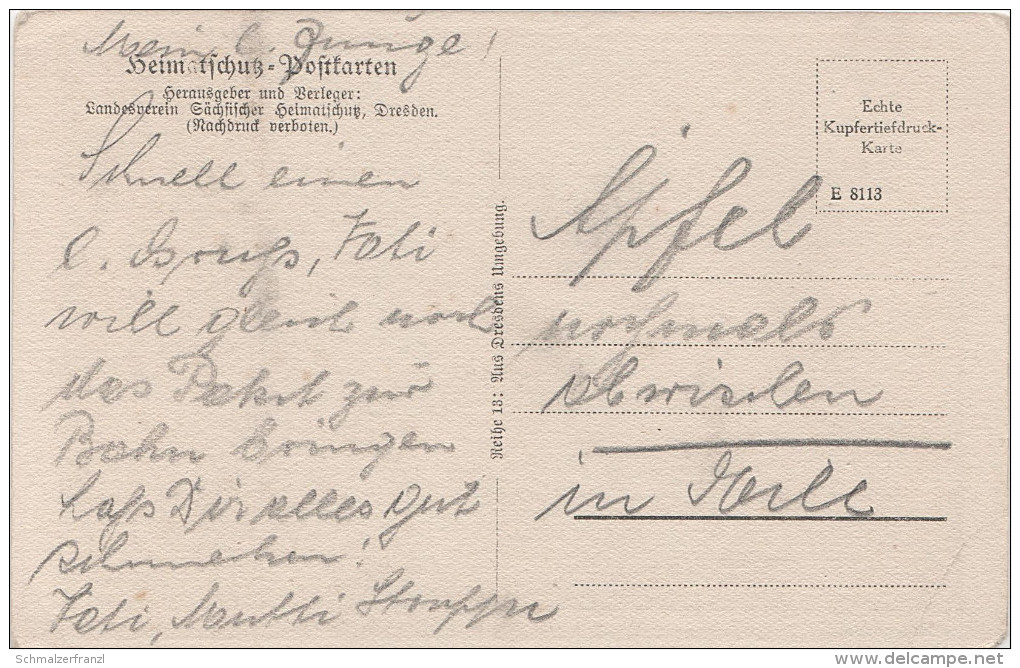 Mein l. Junge!
Heimatschutz-Postkarten
Herausgeber und Verleger:
Landesverein Sächsischer Heimatschutz, Dresden.
(Nachdruck verboten.)
Schnell einen
l. Gruß, Vati
will gleich noch
das Paket zur
Bahn bringen
Laß Dir alles gut
schmecken!
Vati, Mutti
Reihe 13: Aus Dresdens Umgebung.
Echte
Kupfertiefdruck-
Karte
E 8113
Äpfel
nochmals
abwischen
in
Schmalzerfranzl
delcampe.net